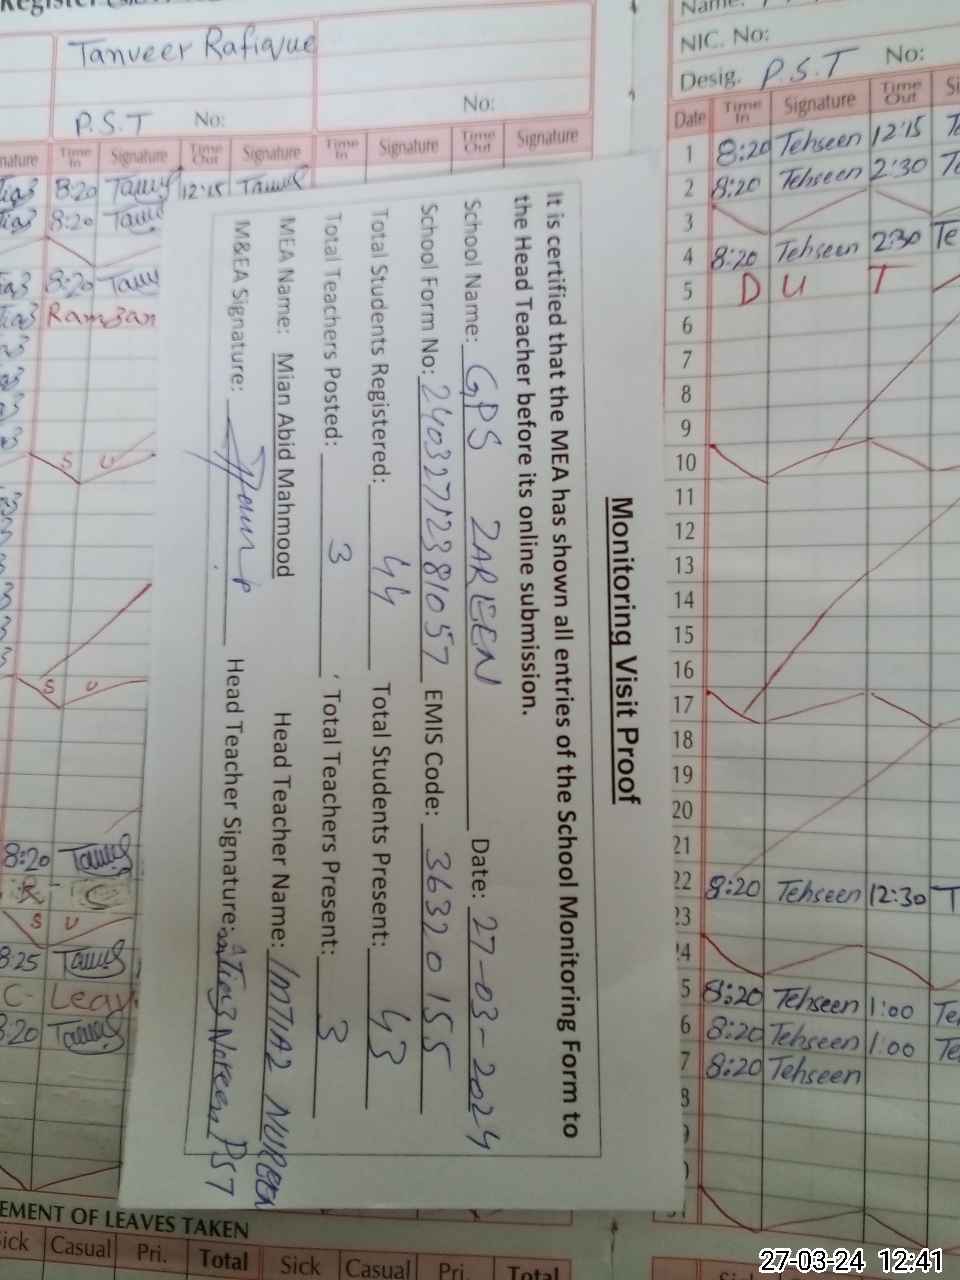 Register
Tanveer Rafique
P.S.T No:
No:
Time In Signature Time Out Signature Time In Signature Time Out Signature
8:20 12:15
8:20
8:20
Ramzan
S U
S U
8:20
R - C
S U
8:25
C- Leav
8:20
EMENT OF LEAVES TAKEN
Sick Casual Pri. Total Sick Casual Pri. Total
Monitoring Visit Proof
It is certified that the MEA has shown all entries of the School Monitoring Form to
the Head Teacher before its online submission.
School Name: GPS ZAREEN Date: 27-03-2024
School Form No: 24032712381057 EMIS Code: 36320155
Total Students Registered: 44 Total Students Present: 43
Total Teachers Posted: 3 Total Teachers Present: 3
MEA Name: Mian Abid Mahmood Head Teacher Name: IMTIAZ NUREEN
M&EA Signature: Head Teacher Signature: Noreen PST
Name:
NIC. No:
Desig. P.S.T No:
Date Time In Signature Time Out Si
1 8:20 Tehseen 12:15 Te
2 8:20 Tehseen 2:30 Te
3
4 8:20 Tehseen 2:30 Te
5 D U T
6
7
8
9
10
11
12
13
14
15
16
17
18
19
20
21
22 8:20 Tehseen 12:30 T
23
24
5 8:20 Tehseen 1:00 Te
6 8:20 Tehseen 1:00 Te
7 8:20 Tehseen
8
27-03-24 12:41